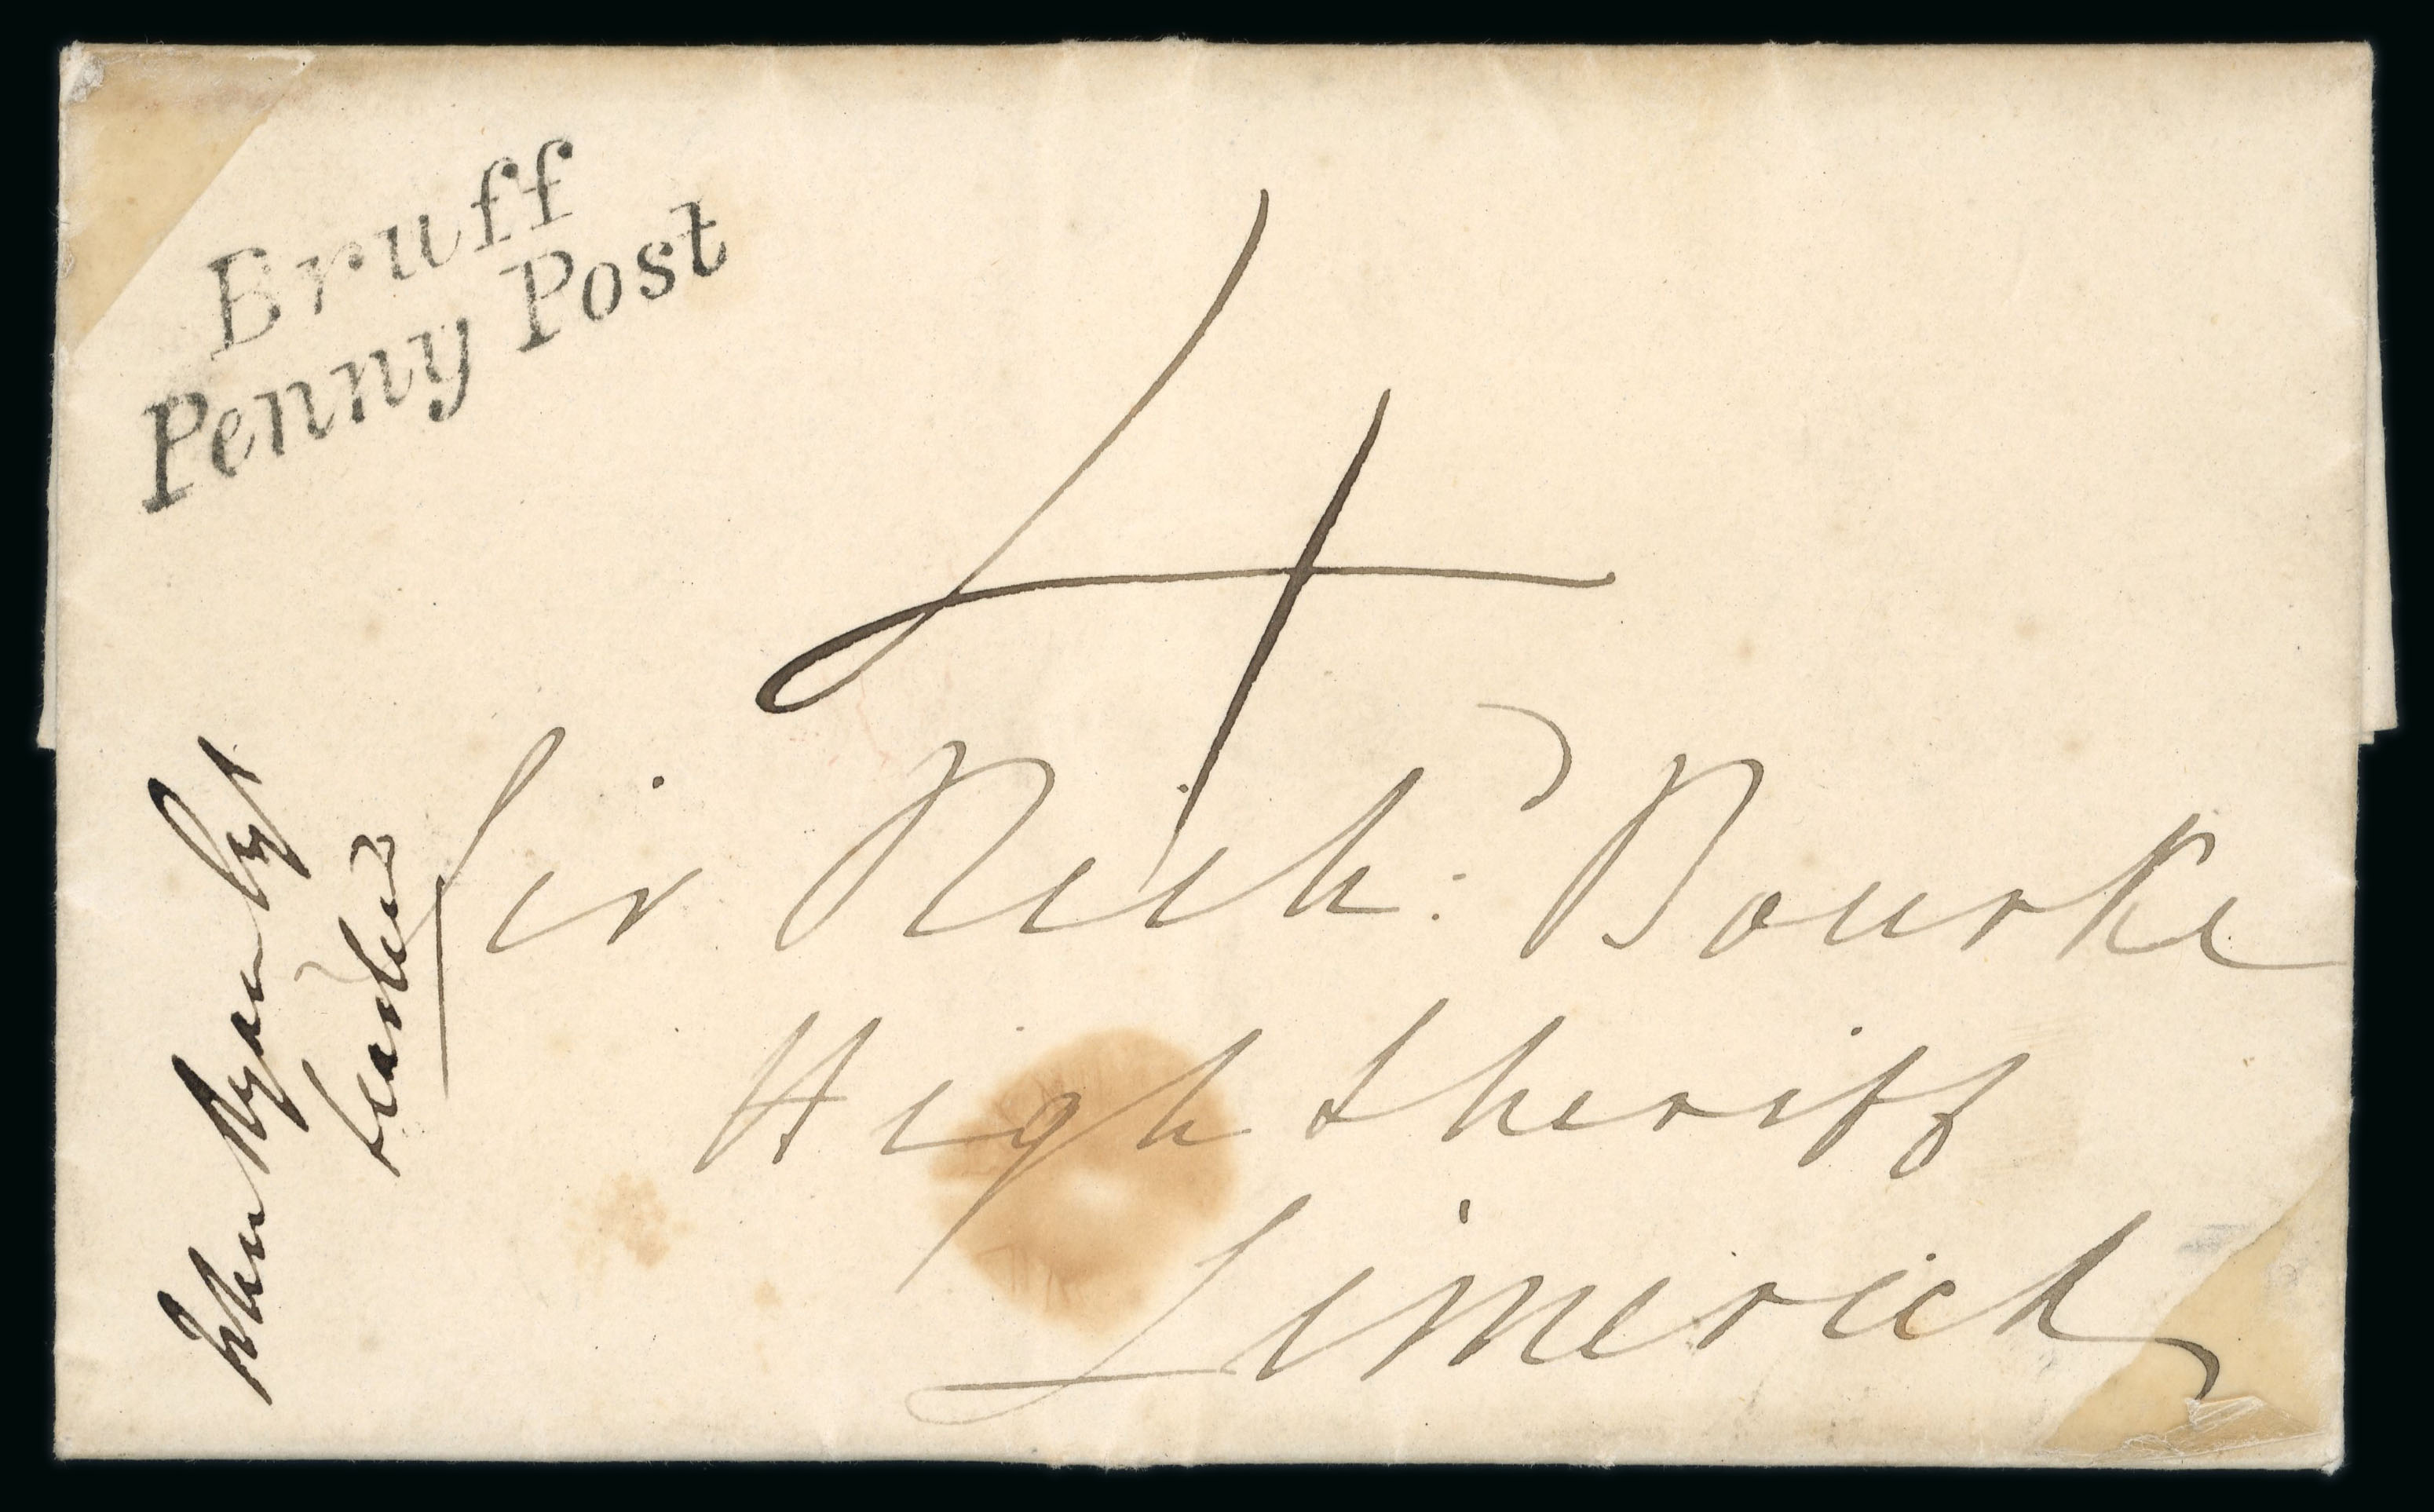 Bruff
Penny Post
4
Sir Rich: Bourke
High Sheriff
Limerick
Ryan